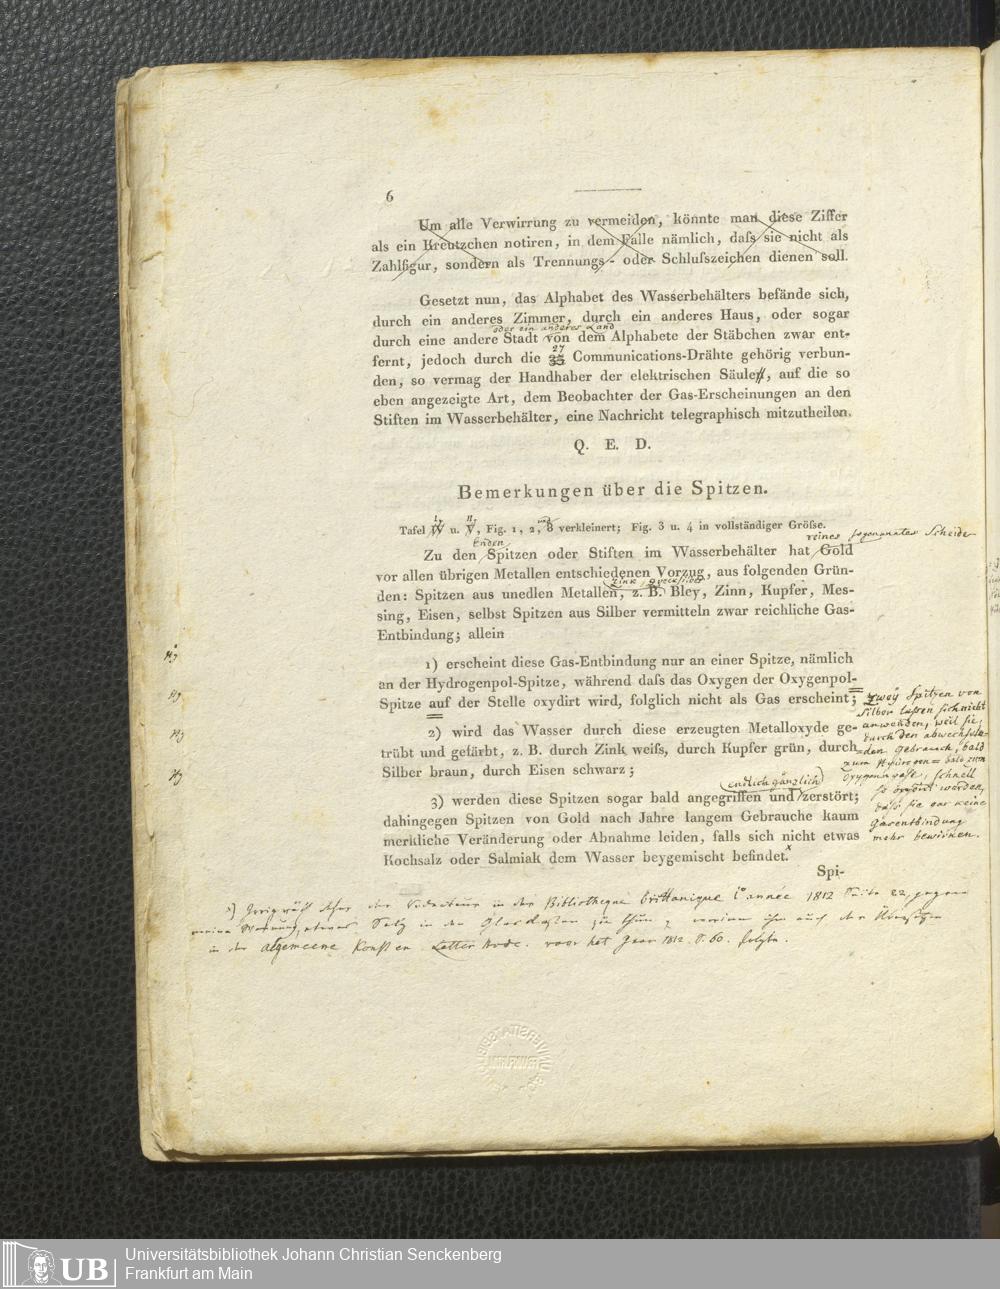 6
Um alle Verwirrung zu vermeiden, könnte man diese Ziffer
als ein Kreutzchen notiren, in dem Falle nämlich, daſs sie nicht als
Zahlfigur, sondern als Trennungs- oder Schluſszeichen dienen soll.
Gesetzt nun, das Alphabet des Wasserbehälters befände sich,
durch ein anderes Zimmer, durch ein anderes Haus, oder sogar
oder ein anderes Land
durch eine andere Stadt von dem Alphabete der Stäbchen zwar ent-
27
fernt, jedoch durch die 35 Communications-Drähte gehörig verbun-
den, so vermag der Handhaber der elektrischen Säulen, auf die so
eben angezeigte Art, dem Beobachter der Gas-Erscheinungen an den
Stiften im Wasserbehälter, eine Nachricht telegraphisch mitzutheilen.
Q. E. D.
Bemerkungen über die Spitzen.
I, II, und
Tafel IV u. V, Fig. 1, 2, 8 verkleinert; Fig. 3 u. 4 in vollständiger Gröſse.
Enden, reines sogenanntes Scheide-
Zu den Spitzen oder Stiften im Wasserbehälter hat Gold
vor allen übrigen Metallen entschiedenen Vorzug, aus folgenden Grün-
Zink, Quecksilber
den: Spitzen aus unedlen Metallen, z. B. Bley, Zinn, Kupfer, Mes-
sing, Eisen, selbst Spitzen aus Silber vermitteln zwar reichliche Gas-
Entbindung; allein
1) erscheint diese Gas-Entbindung nur an einer Spitze, nämlich
an der Hydrogenpol-Spitze, während daſs das Oxygen der Oxygenpol-
Spitze auf der Stelle oxydirt wird, folglich nicht als Gas erscheint;
zwey Spitzen von
Silber laſsen sich nicht
anwenden, weil sie,
durch den abwechseln-
den Gebrauch, bald
zum Hydrogen= bald zum
Oxygengase, schnell
so oxydirt werden,
daſs sie gar keine
Gasentbindung
mehr bewirken.
2) wird das Wasser durch diese erzeugten Metalloxyde ge-
trübt und gefärbt, z. B. durch Zink weiſs, durch Kupfer grün, durch
Silber braun, durch Eisen schwarz;
endlich gänzlich
3) werden diese Spitzen sogar bald angegriffen und zerstört;
dahingegen Spitzen von Gold nach Jahre langem Gebrauche kaum
merkliche Veränderung oder Abnahme leiden, falls sich nicht etwas
Kochsalz oder Salmiak dem Wasser beygemischt befindet.x
Spi-
x) der Redacteur in der Bibliotheque brittanique année 1812 Seite 22, gegen
meine Warnung, etwas Salz in den Glaskasten zu thun;
in der algemeene Konst en Letter bode. voor het Jaar 1812. S. 60.
Universitätsbibliothek Johann Christian Senckenberg
Frankfurt am Main
UB